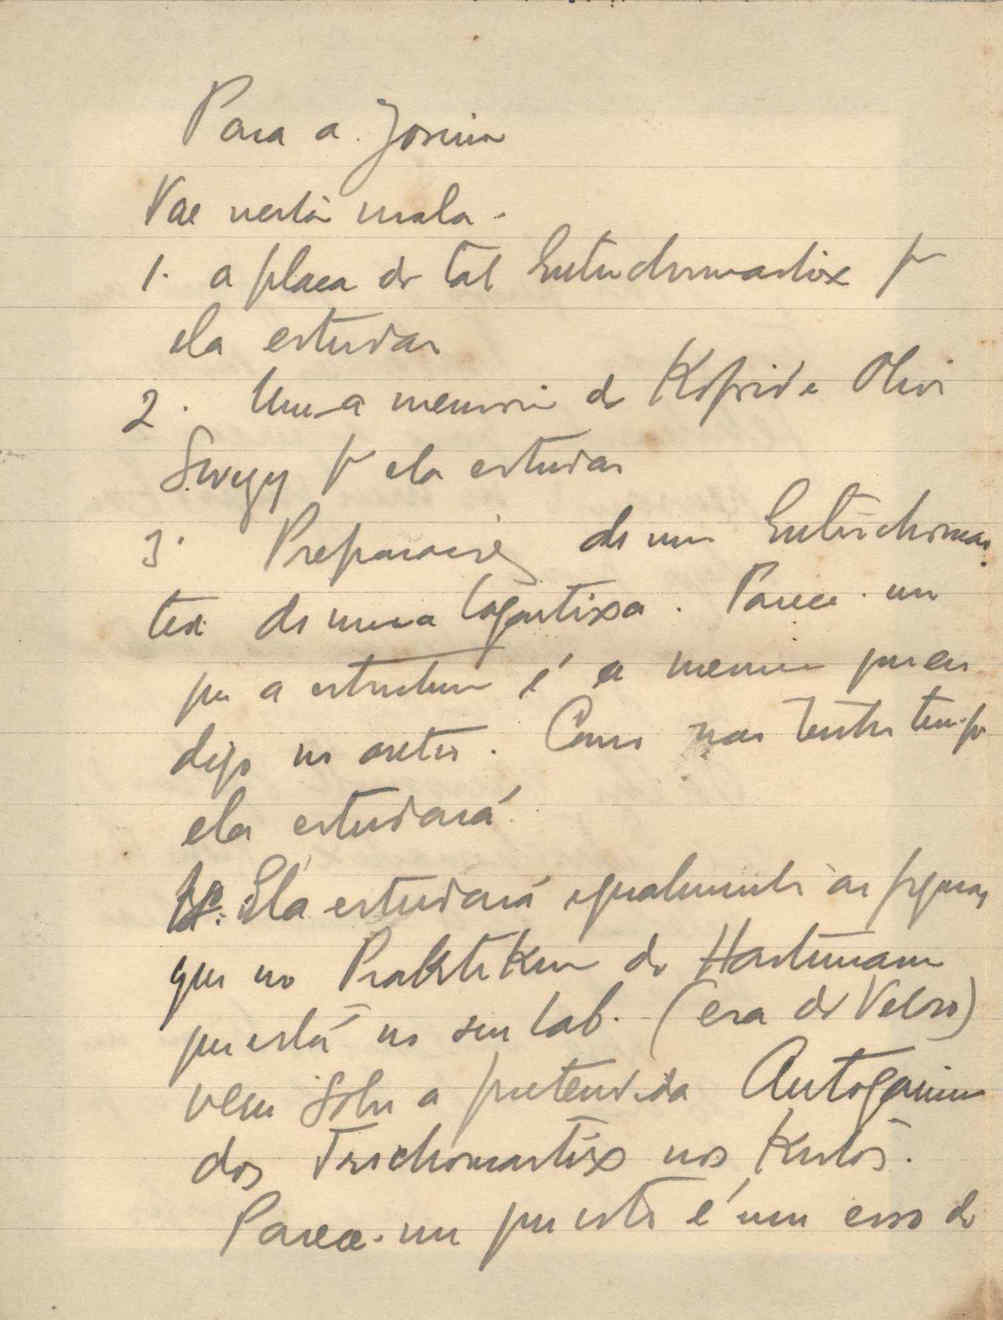 Para a Josina
Vae nesta mala -
1. a placa do tal Eutrichomastix pª
ela estudar
2. Uma memoria de Kofoid e Olive
Swezy pª ela estudar
3. Preparações de um Eutrichomas
tix de uma lagartixa. Parece-me
que a estructura é a mesma que eu
digo no
ela estudará.
4º. Ela estudará egualmente as figuras
que no Praktikum do Hartmann
que está no seu lab. (era do Veloso)
vem sobre a pretendida Autogamia
dos Trichomastix nos Kistos.
Parece-me que isto é um erro de